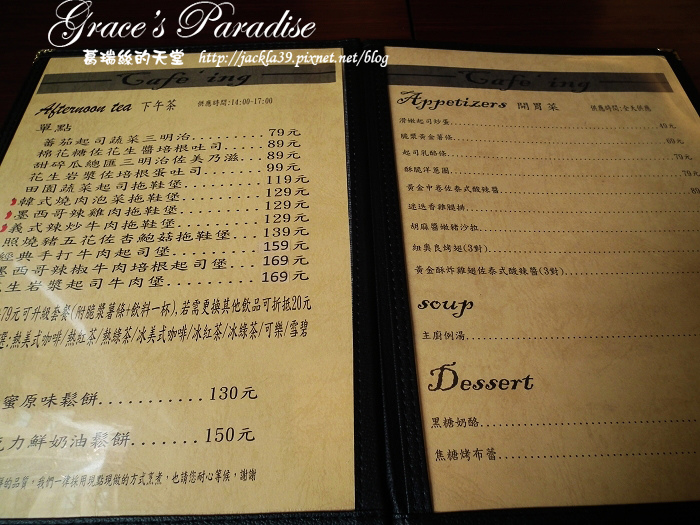 Grace's Paradise
葛瑞絲的天堂
http://jackla39.pixnet.net/blog
Cafe'ing
Afternoon tea 下午茶 供應時間:14:00-17:00
單點
番茄起司蔬菜三明治..........79元
棉花糖佐花生醬培根吐司.....89元
甜碎瓜總匯三明治佐美乃滋...89元
花生岩漿佐培根蛋吐司........99元
田園蔬菜起司拖鞋堡..........119元
韓式燒肉泡菜拖鞋堡..........129元
墨西哥辣雞肉拖鞋堡..........129元
義式辣炒牛肉拖鞋堡..........129元
照燒豬五花佐杏鮑菇拖鞋堡...139元
經典手打牛肉起司堡..........159元
墨西哥辣椒牛肉培根起司堡...169元
生岩漿起司牛肉堡............169元
79元可升級套餐(附脆漿薯條+飲料一杯),若需更換其他飲品可折抵20元
選:熱美式咖啡/熱紅茶/熱綠茶/冰美式咖啡/冰紅茶/冰綠茶/可樂/雪碧
蜜原味鬆餅..........130元
力鮮奶油鬆餅.......150元
的品質,我們一律採用現點現做的方式烹煮,也請您耐心等候,謝謝
Cafe'ing
Appetizers 開胃菜 供應時間:全天供應
滑嫩起司炒蛋 49元
脆漿黃金薯條
起司乳酪條 79元
酥脆洋蔥圈 79元
黃金中卷佐泰式酸辣醬
迷迭香雞腿排
胡麻醬嫩豬沙拉
紐奧良烤翅(3對)
黃金酥炸雞翅佐泰式酸辣醬(3對)
soup
主廚例湯
Dessert
黑糖奶酪
焦糖烤布蕾